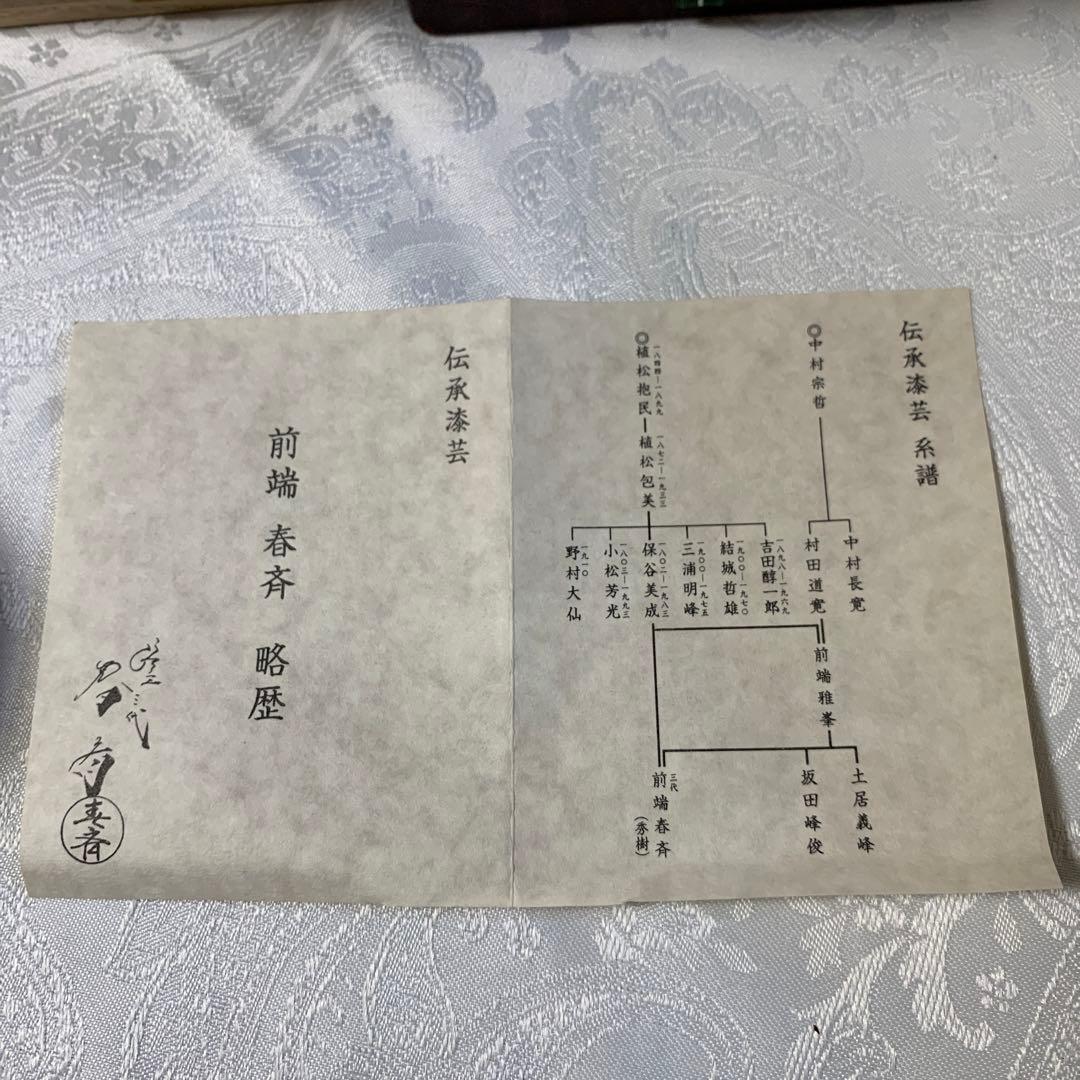 伝承漆芸 系譜
◎中村宗哲
中村長寛
村田道寛
前端雅峯
土居義峰
坂田峰俊
三代
前端春斉
(秀樹)
◎植松抱民
植松包美
一八七二ー一九三三
吉田醇一郎
一八九八ー一九六九
結城哲雄
一九〇〇ー一九七〇
三浦明峰
一九〇〇ー一九七五
保谷美成
一八〇二ー一九八三
小松芳光
一八〇三ー一九九三
野村大仙
一九一〇
伝承漆芸
前端 春斉 略歴
春斉